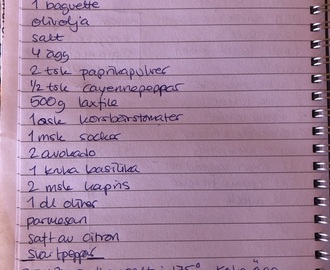 1 baguette
olivolja
salt
4 ägg
2 tsk paprikapulver
1/2 tsk cayennepeppar
500g laxfile
1 ask körsbärstomater
1 msk socker
2 avokado
1 kruka basilika
2 msk kapris
1 dl oliver
parmesan
saft av citron
svartpeppar
175°